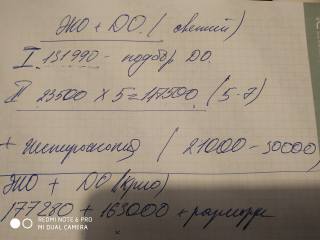 ЭКО + ДО. ( свежий)
I 131990 - подбор ДО.
II 23500 X 5 = 117500 (5-7)
+ Гистероскопия ( 21000 - 30000)
ЭКО + ДО (крио)
177220 + 163000 + разморз
REDMI NOTE 6 PRO
MI DUAL CAMERA